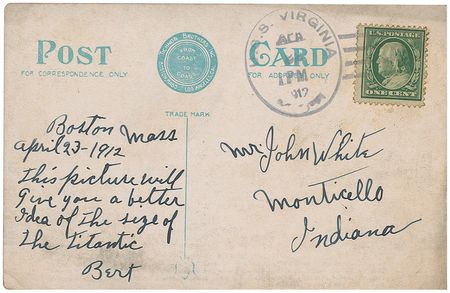 POST
FOR CORRESPONDENCE ONLY
FROM
COAST
TO
COAST
CARD
FOR ADDRESS ONLY
U.S. VIRGINIA
APR
PM
1912
ONE CENT
TRADE MARK
Boston Mass
April 23-1912
This picture will
Give you a better
Idea of the size of
The Titantic
Bert
Mr John White
Monticello
Indiana